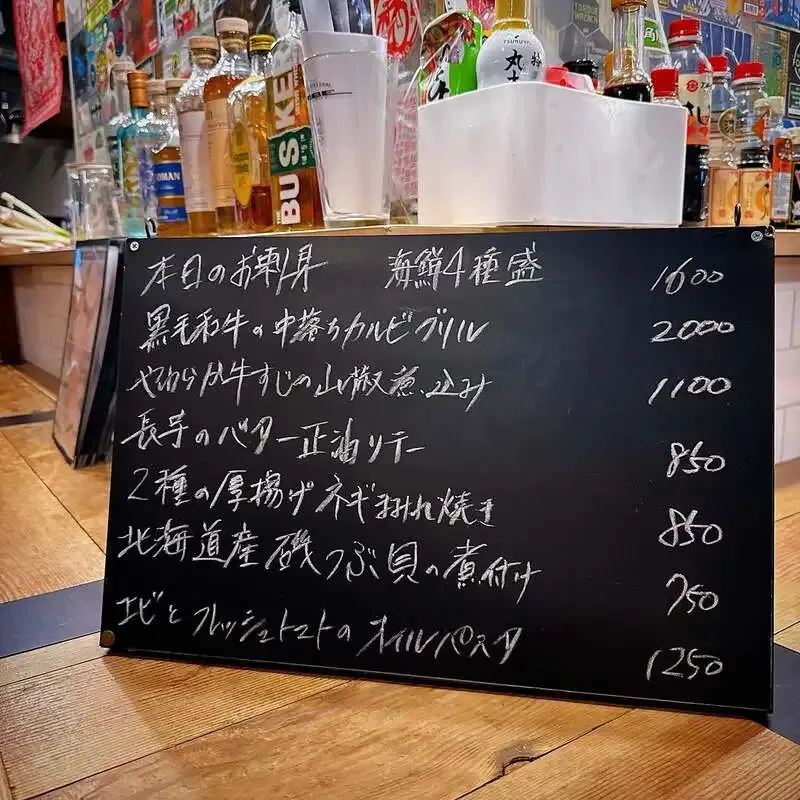 BUSKER
OMAN
丸
角
本日のお刺身 海鮮4種盛 1600
黒毛和牛の中落ちカルビグリル 2000
やわらか牛すじの山椒煮込み 1100
長芋のバター正油ソテー 850
2種の厚揚げネギまみれ焼き 850
北海道産磯つぶ貝の煮付け 750
エビとフレッシュトマトのオイルパスタ 1250